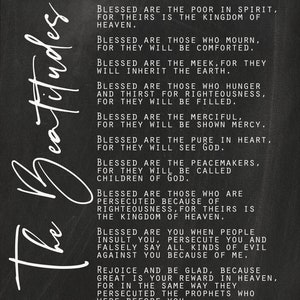 The Beatitudes
Blessed are the poor in spirit,
for theirs is the kingdom of
heaven.
Blessed are those who mourn,
for they will be comforted.
Blessed are the meek,for they
will inherit the earth.
Blessed are those who hunger
and thirst for righteousness,
for they will be filled.
Blessed are the merciful,
for they will be shown mercy.
Blessed are the pure in heart,
for they will see God.
Blessed are the peacemakers,
for they will be called
children of God.
Blessed are those who are
persecuted because of
righteousness,for theirs is
the kingdom of heaven.
Blessed are you when people
insult you, persecute you and
falsely say all kinds of evil
against you because of me.
Rejoice and be glad, because
great is your reward in heaven,
for in the same way they
persecuted the prophets who
were before you.